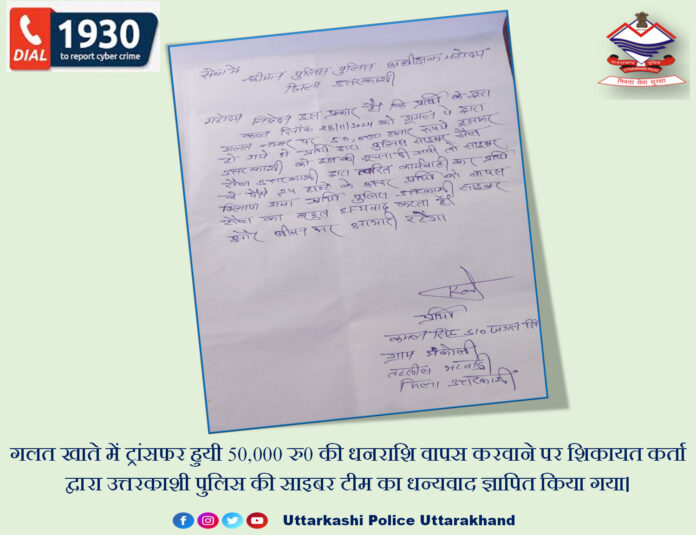 DIAL
1930
to report cyber crime
सेवा में
श्रीमान पुलिस पुलिस अधीक्षक महोदय
जिला उत्तरकाशी
महोदय निवेदन इस प्रकार है कि प्रार्थी के द्वारा
कल दिनांक 28/11/2024 को गूगल पे द्वारा
गलत नम्बर पर 50,000 हजार रूपये ट्रांसफर
हो गये थे प्रार्थी द्वारा पुलिस साइबर सैल
उत्तरकाशी को इसकी सूचना दी गयी तो साइबर
सैल उत्तरकाशी द्वारा त्वरित कार्यवाही कर प्रार्थी
के पैसे 24 घण्टे के अन्दर प्रार्थी को वापस
दिलाया गया प्रार्थी पुलिस उत्तरकाशी साइबर
सैल का बहुत धन्यवाद करता है।
और जीवन भर आभारी रहेगा।
प्रार्थी
कमल सिंह S/O जगत सिंह
ग्राम
तहसील भटवाड़ी
जिला उत्तरकाशी
गलत खाते में ट्रांसफर हुयी 50,000 रु0 की धनराशि वापस करवाने पर शिकायत कर्ता
द्वारा उत्तरकाशी पुलिस की साइबर टीम का धन्यवाद ज्ञापित किया गया।
Uttarkashi Police Uttarakhand